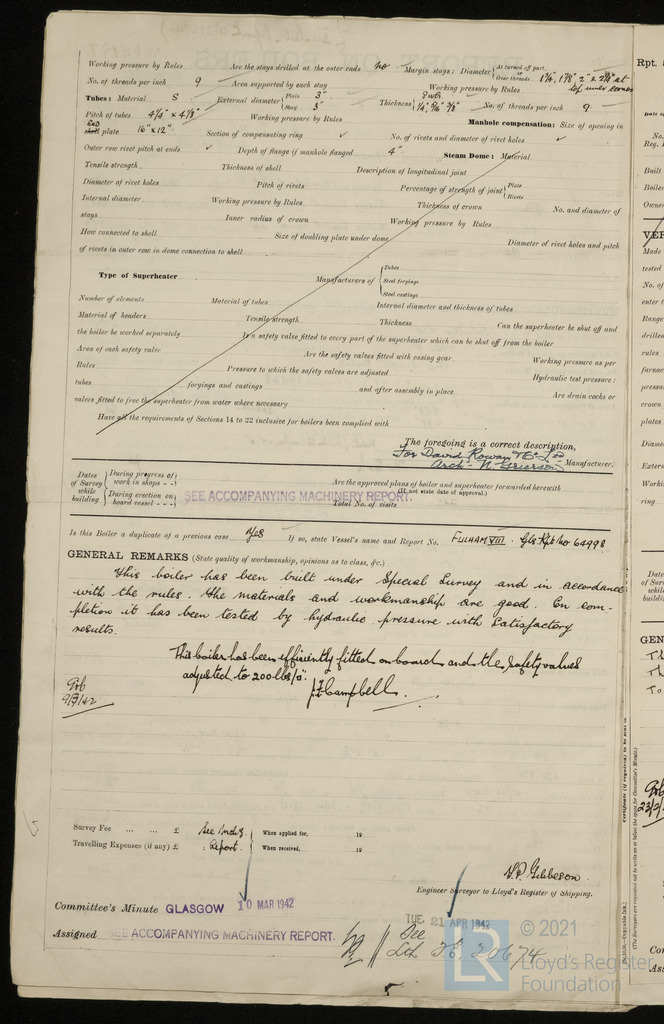 Working pressure by Rules Are the stays drilled at the outer ends No Margin stays: Diameter { At turned off part. Over threads 1¾", 1⅞" 2" & 2¼" at top under corner
No. of threads per inch 9 Area supported by each stay Working pressure by Rules
Tubes: Material S External diameter { Plain 3" Stay 3" Thickness { 8 WG. ¼" 5/16 3/8" No. of threads per inch 9
Pitch of tubes 4¼" x 4⅛" Working pressure by Rules Manhole compensation: Size of opening in
END shell plate 16" x 12" Section of compensating ring ✓ No. of rivets and diameter of rivet holes ✓
Outer row rivet pitch at ends ✓ Depth of flange if manhole flanged 4" Steam Dome: Material
Tensile strength Thickness of shell Description of longitudinal joint
Diameter of rivet holes Pitch of rivets Percentage of strength of joint { Plate Rivets
Internal diameter Working pressure by Rules Thickness of crown No. and diameter of
stays Inner radius of crown Working pressure by Rules
How connected to shell Size of doubling plate under dome Diameter of rivet holes and pitch
of rivets in outer row in dome connection to shell
Type of Superheater Manufacturers of { Tubes Steel forgings Steel castings
Number of elements Material of tubes Internal diameter and thickness of tubes
Material of headers Tensile strength Thickness Can the superheater be shut off and
the boiler be worked separately Is a safety valve fitted to every part of the superheater which can be shut off from the boiler
Area of each safety valve Are the safety valves fitted with easing gear Working pressure as per
Rules Pressure to which the safety valves are adjusted Hydraulic test pressure:
tubes forgings and castings and after assembly in place Are drain cocks or
valves fitted to free the superheater from water where necessary
Have all the requirements of Sections 14 to 22 inclusive for boilers been complied with
The foregoing is a correct description,
For David Rowan & Co Ld
Arch. W. Grierson Manufacturer.
Dates of Survey while building { During progress of work in shops - - During erection on board vessel - - -
SEE ACCOMPANYING MACHINERY REPORT.
Are the approved plans of boiler and superheater forwarded herewith
(If not state date of approval.)
Total No. of visits
Is this Boiler a duplicate of a previous case Yes If so, state Vessel's name and Report No. FULHAM VIII. Gls. Rpt No 64998
GENERAL REMARKS (State quality of workmanship, opinions as to class, &c.)
This boiler has been built under Special Survey and in accordance
with the rules. The materials and workmanship are good. On com-
pletion it has been tested by hydraulic pressure with satisfactory
results.
This boiler has been efficiently fitted on board and the safety valves
adjusted to 200 lbs/□".
J F Campbell.
Survey Fee ... ... £ See Indg. When applied for, 19
Travelling Expenses (if any) £ Report. When received, 19
W.P. Gibbeson
Engineer Surveyor to Lloyd's Register of Shipping.
Committee's Minute GLASGOW 10 MAR 1942
TUE. 21 APR 1942
Assigned SEE ACCOMPANYING MACHINERY REPORT.
See
© 2021
Lloyd's Register
Foundation
Rpt.